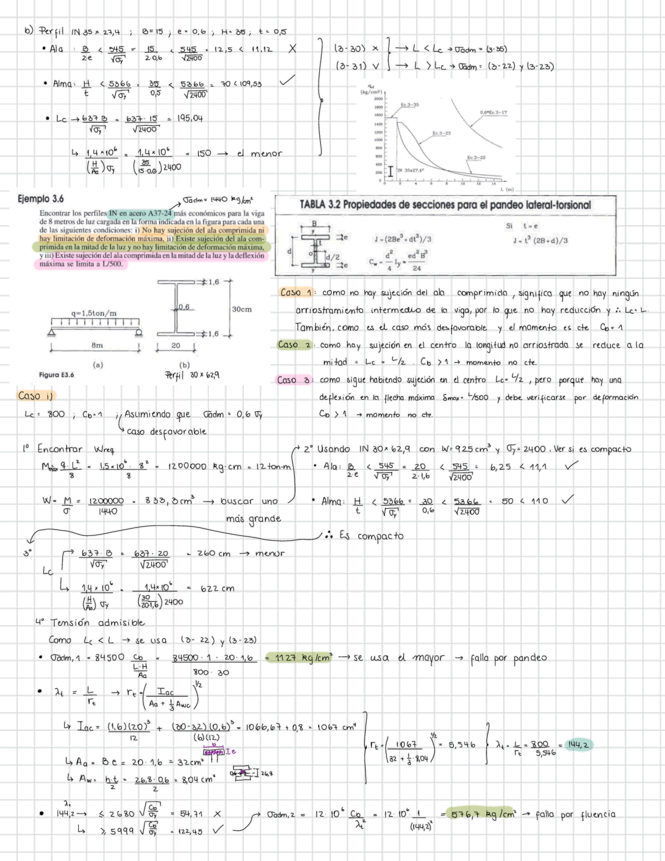 b) Perfil IN 35 × 27,4 ; B=15 ; e = 0,6 ; H = 35 ; t = 0,5
• Ala : B/2e < 545/√σy = 15/2·0,6 < 545/√2400 = 12,5 < 11,12 X
• Alma : H/t < 5366/√σy = 35/0,5 < 5366/√2400 = 70 < 109,53 ✓
• Lc → 637 B/√σy = 637·15/√2400 = 195,04
↳ 1,4×10⁶/(H/Aa)σy = 1,4×10⁶/(35/15·0,6)2400 = 150 → el menor
(3-30) x → L < Lc → σadm = (3-35)
(3-31) ✓ → L > Lc → σadm = (3-22) y (3-23)
(kg/cm²)
2000
1800
1600
1400
1200
1000
800
600
400
200
0
Ec.3-35
Ec.3-23
Ec.3-22
IN 35x27,4
2 4 6 8 10 12 14
L (m)
Ejemplo 3.6
σadm = 1440 kg/cm²
Encontrar los perfiles IN en acero A37-24 más económicos para la viga
de 8 metros de luz cargada en la forma indicada en la figura para cada una
de las siguientes condiciones: i) No hay sujeción del ala comprimida ni
hay limitación de deformación máxima, ii) Existe sujeción del ala com-
primida en la mitad de la luz y no hay limitación de deformación máxima,
y iii) Existe sujeción del ala comprimida en la mitad de la luz y la deflexión
máxima se limita a L/500.
q=1,5ton/m
8m
(a)
Figura E3.6
1,6
0.6
30cm
1,6
20
(b)
Perfil 30 × 62,9
TABLA 3.2 Propiedades de secciones para el pandeo lateral-torsional
B
e
d
d/2
e
J = (2Be³ + dt³)/3
Cw = d²/4 Iy = ed²B³/24
Si t = e
J = t³ (2B+d)/3
Caso 1: como no hay sujeción del ala comprimida, significa que no hay ningún
arriostramiento intermedio de la viga, por lo que no hay reducción y ∴ Lc=L.
También, como es el caso más desfavorable y el momento es cte Cb=1
Caso 2: como hay sujeción en el centro la longitud no arriostrada se reduce a la
mitad = Lc = L/2. Cb > 1 → momento no cte.
Caso 3: como sigue habiendo sujeción en el centro Lc= L/2, pero porque hay una
deflexión en la flecha máxima δmax= L/500 y debe verificarse por deformación
Cb > 1 → momento no cte.
Caso i)
Lc = 800 ; Cb=1 ; Asumiendo que σadm = 0,6 σy
↳ caso desfavorable
1° Encontrar Wreq
q·L²/8 = 1,5×10³·8²/8 = 1200000 kg·cm = 12 ton·m
W= M/σ = 1200000/1440 = 833,3 cm³ → buscar uno
más grande
2° Usando IN 30×62,9 con W=925 cm³ y σy=2400. Ver si es compacto
• Ala: B/2e < 545/√σy = 20/2·1,6 < 545/√2400 = 6,25 < 11,1 ✓
• Alma: H/t < 5366/√σy = 30/0,6 < 5366/√2400 = 50 < 110 ✓
∴ Es compacto
3°
Lc → 637·B/√σy = 637·20/√2400 = 260 cm → menor
↳ 1,4×10⁶/(H/Aa)σy = 1,4×10⁶/(30/20·1,6)2400 = 622 cm
4° Tensión admisible
Como Lc < L → se usa (3-22) y (3-23)
• σadm,1 = 84500 Cb/(L·H/Aa) = 84500·1·20·1,6/800·30 = 1127 kg/cm² → se usa el mayor → falla por pandeo
• λt = L/rt → rt = (Iac/(Aa + 1/3 Awc))^½
↳ Iac = (1,6)(20)³/12 + (30-3,2)(0,6)³/(6)(12) = 1066,67 + 0,8 = 1067 cm⁴
↳ Aa = B·e = 20·1,6 = 32cm²
↳ Aw = h·t/2 = 26,8·0,6/2 = 8,04 cm²
rt = (1067/(32 + 1/3·8,04))^½ = 5,546
λt = L/rt = 800/5,546 = 144,2
• λt
144,2 → ≤ 2680 √(Cb/σy) = 54,71 X
↳ ≥ 5999 √(Cb/σy) = 122,45 ✓
→ σadm,2 = 12·10⁶ Cb/λt² = 12·10⁶ 1/(144,2)² = 576,7 kg/cm² → falla por fluencia